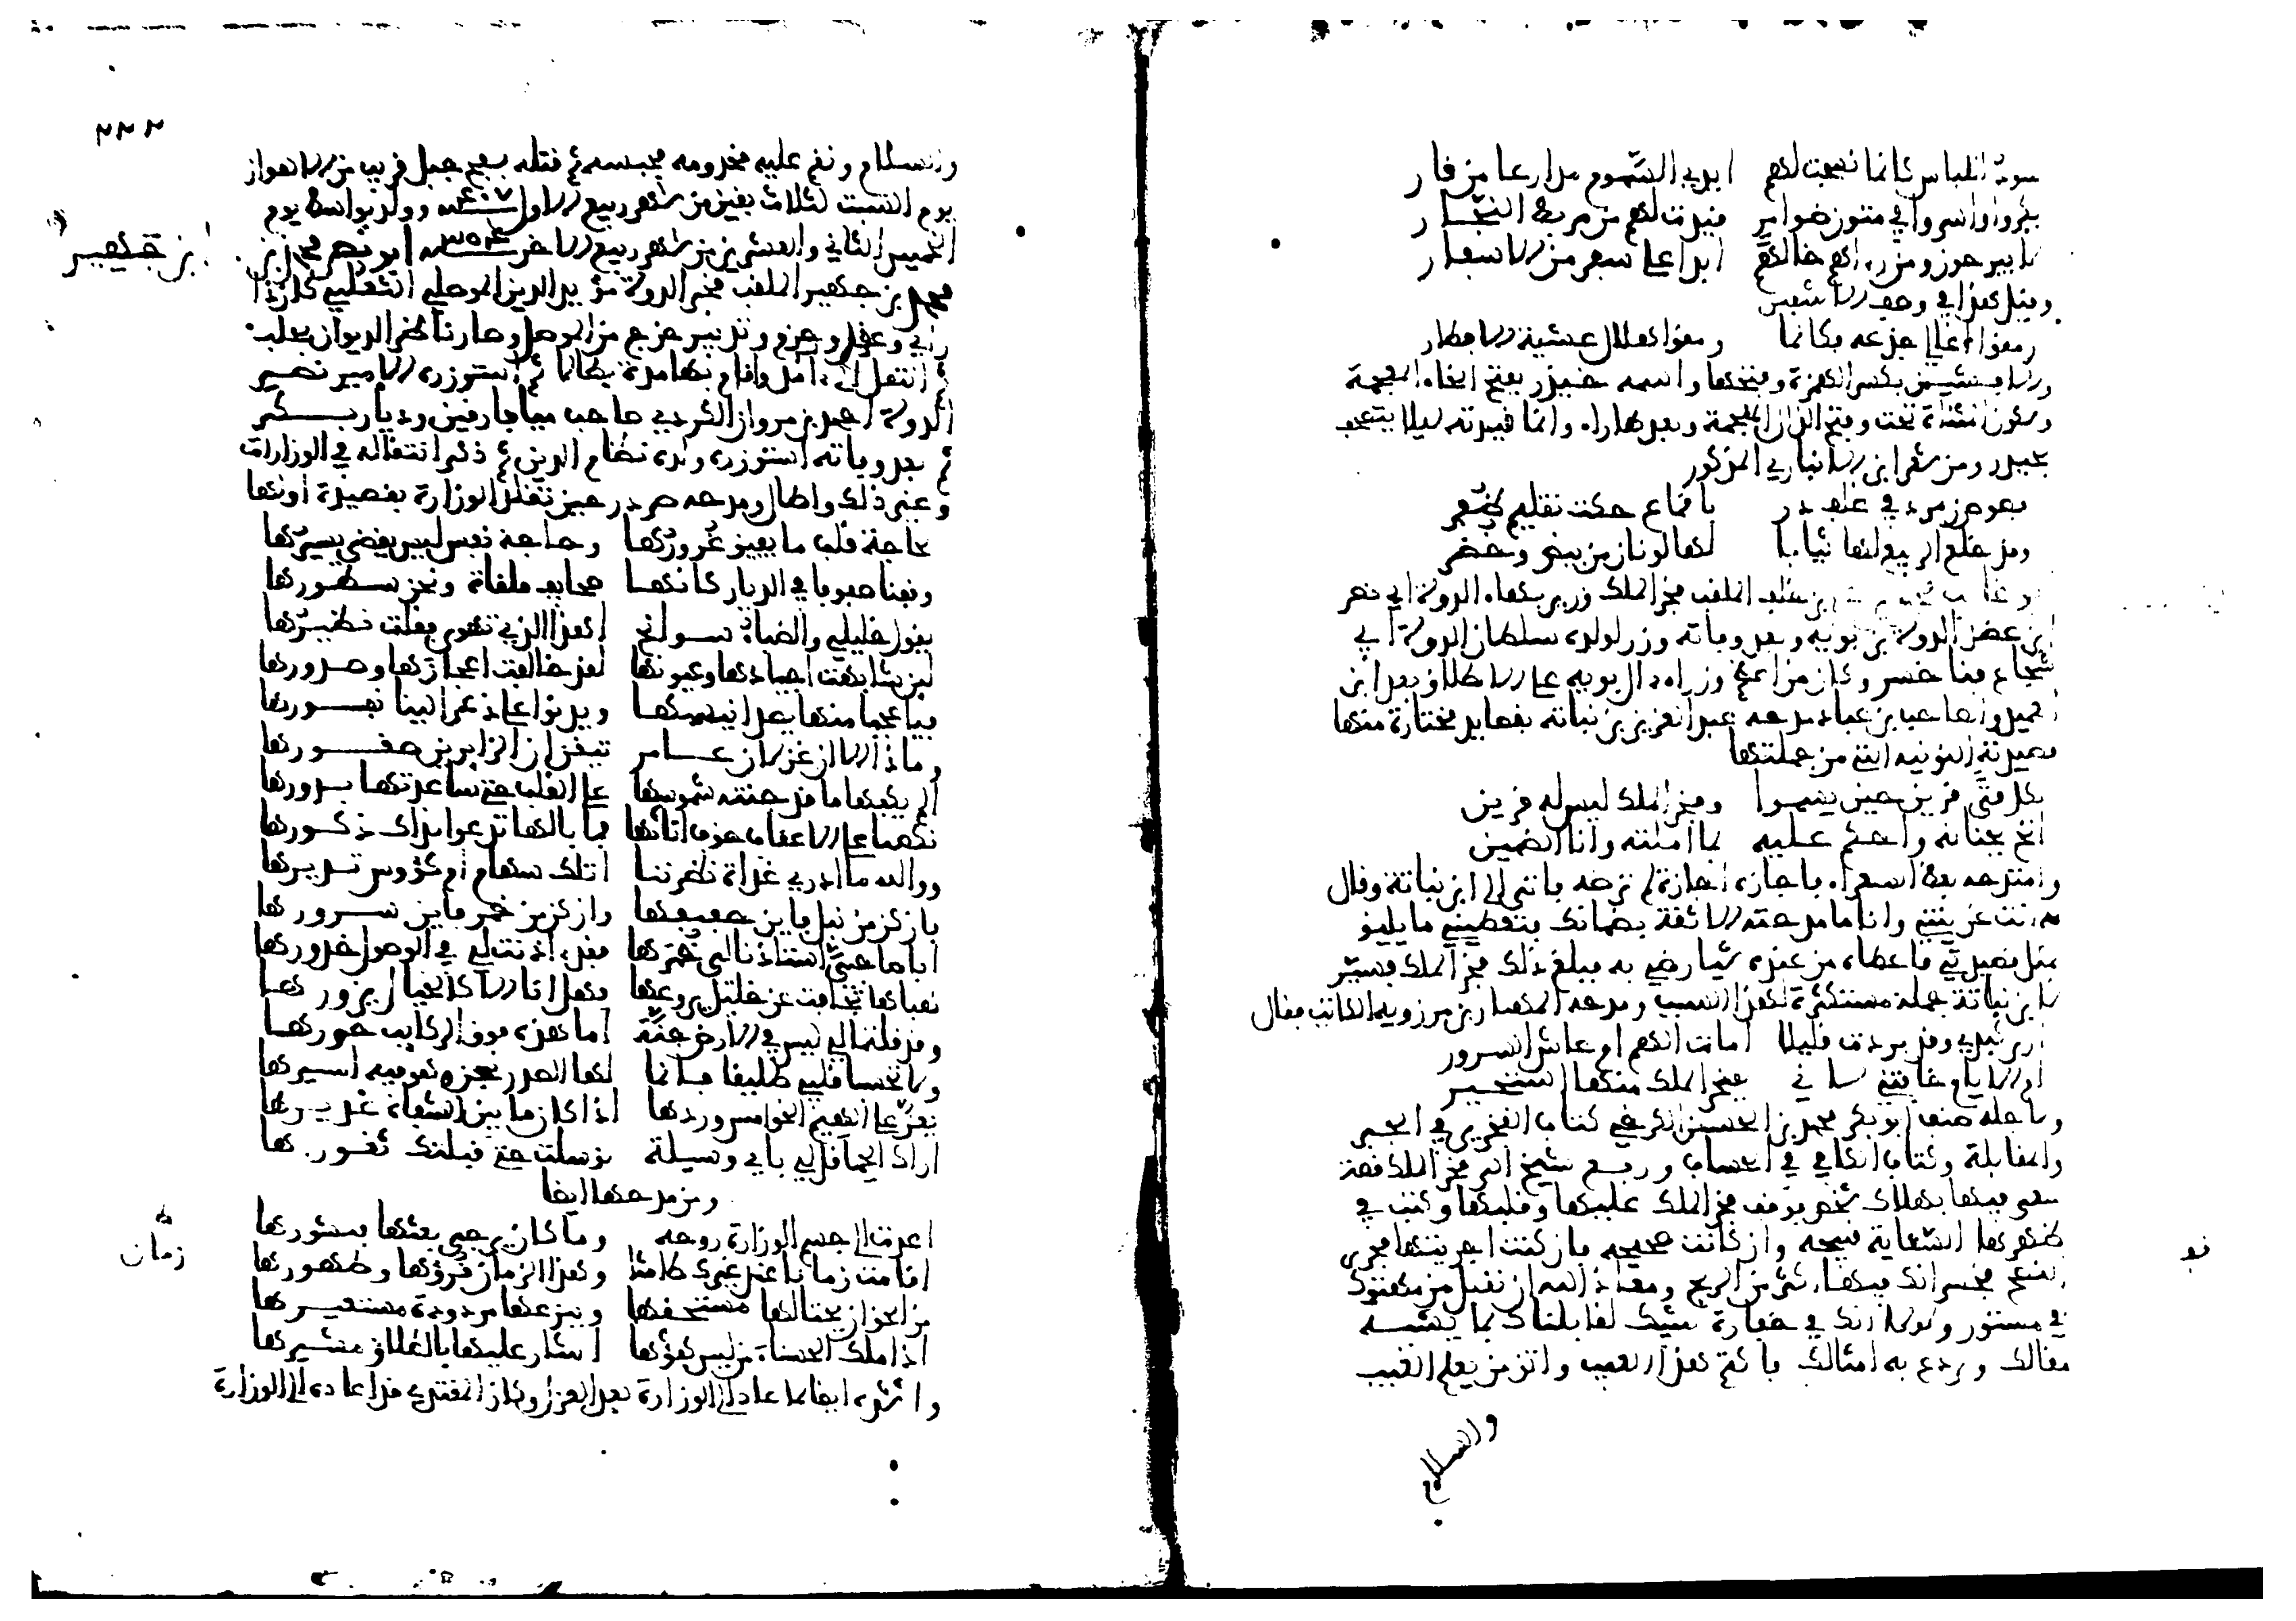 سود اللباس كأنما نسجت لهم ايدي السموم مدارعا من قار
بكروا واسروا في متون ضوامر قيدت لهم من مربط النجار
لا يبرحون ومن رءاهم خالهم ابدا على سفر من الاسفار
وقيل هذا في وصف الافشين
رمقوا اعالي جذعه فكأنما رمقوا الهلال عشية الافطار
والافشين بكسر الهمزة وفتحها واسمه خيذر بفتح الخاء المعجمة
وسكون المثناة تحت وفتح الذال المعجمة وبعدها راء وانما قيدته ليلا يتصحف
بحيدر ومن شعر ابن الانباري المذكور
فصوص زمرد في غلف در باقماع حكت تقليم ظفر
وقد خلع الربيع لها ثيابا لها لونان من بيض وخضر
ابو غالب محمد بن خلف الملقب فخر الملك وزير بهاء الدولة ابي نصر
ابن عضد الدولة بن بويه وبعد وفاته وزر لولده سلطان الدولة ابي
شجاع فناخسر وكان من اعظم وزراء ءال بويه على الاطلاق بعد ابن
العميد والصاحب ابن عباد مدحه عبد العزيز بن نباتة بقصايد مختارة منها
قصيدته النونية التي من جملتها
لكل فتى قرين حين يسموا وفخر الملك ليس له قرين
انخ بجنابه واحكم عليه بما املته وانا الضمين
وامتدحه بعض الشعراء فاجازه اجازة لم ترضه فاتى الى ابن نباتة وقال
له انت غررتني وانا ما مدحته الا ثقة بضمانك فتعطيني ما يليق
بمثل قصيدتي فاعطاه من عنده شيا رضي به فبلغ ذلك فخر الملك فسير
لابن نباتة جملة مستكثرة لهذا السبب ومدحه المهيار بن مرزويه الكاتب فقال
ارى كبدي وقد بردت قليلا امات الهم ام عاش السرور
ام الايام خافتني لاني بفخر الملك منها استجير
ولاجله صنف ابو بكر محمد بن الحسن الكرخي كتاب الفخري في الجبر
والمقابلة وكتاب الكافي في الحساب ورفع شيخ الى فخر الملك قصة
سعى فيها بهلاك شخص فوقف فخر الملك عليها وقلبها وكتب في
ظهرها السعاية قبيحة وان كانت صحيحة فان كنت اجريتها مجرى
النصح فخسرانك فيها اكثر من الربح ومعاذ الله ان نقبل من مهتوك
في مستور ولولا انك في خفارة شيبك لقابلناك بما يشبه
مقالك ويردع به امثالك فاكتم هذا العيب واتق من يعلم الغيب
والسلام
نو
٢٢٢
والسلام ونقم عليه مخدومه فحبسه ثم قتله بسفح جبل قريب من الاهواز
يوم السبت لثلاث بقين من شهر ربيع الاول سنة ٤٠٧ وولد بواسط يوم
الخميس الثاني والعشرين من شهر ربيع الاخر سنة ٣٥٤ ابو نصر محمد بن
محمد بن جهير الملقب فخر الدولة مؤيد الدين الموصلي الثعلبي كان ذا
راي وعقل وحزم وتدبير خرج من الموصل وصار ناظر الديوان بحلب
ثم انتقل الى ءامد واقام بها مدة بطالا ثم استوزره الامير نصير
الدولة احمد بن مروان الكردي صاحب ميافارقين وديار بكر
ثم بعد وفاته استوزره ولده نظام الدين ثم ذكر انتقاله في الوزارات
وعنى ذلك واطال ومدحه صردر حين تقلد الوزارة بقصيدة اولها
لجاجة قلب ما يفيق غرورها وحاجة نفس ليس يقضى يسيرها
وقفنا صفوفا في الديار كانها صحايف ملقاة ونحن سطورها
يقول خليلي والضباء سوانح اهذا الذي تهوى فقلت نظيرها
لين شابهت اجيادها وعيونها لقد خالفت اعجازها وصدورها
فيا عجبا منها يصد انيسها ويدنوا على ذعر الينا نفورها
وما ذاك الا ان غزلان عامر تيقن ان الزايرين صقورها
الم يكفها ما قد جنته شموسها على القلب حتى ساعدتها بدورها
نكصنا على الاعقاب خوف اناثها فما بالها تدعوا نزال ذكورها
ووالله ما ادري غداة نظرننا اتلك سهام ام كؤوس تديرها
فان كن من نبل فاين حفيفها وان كن من خمر فاين سرورها
ايا صاحبي استاذنا لي خمرها فقد اذنت لي في الوصول خدورها
هباها تجافت عن خليل يروعها فهل انا الا كالخيال يزورها
وقد قلتما لي ليس في الارض جنة اما هذه فوق الركايب حورها
ولا تحسبا قلبي طليقا فانما لها الصدر سجن وهو فيه اسيرها
يعز على الهيم الخوامس وردها اذا كان ما بين الشفاه غديرها
اراك الحمى قل لي باي وسيلة توسلت حتى قبلتك ثغورها
ومن مدحها ايضا
اعدت الى جسم الوزارة روحه وما كان يرجى بعثها ونشورها
اقامت زمانا عند غيرك طامثا وهذا الزمان قرؤها وطهورها
من الحق ان يحتالها مستحقها وينزعها مردودة مستعيرها
اذا ملك الحسناء من ليس كفؤها اشار عليها بالطلاق مشيرها
وانشده ايضا لما عاد الى الوزارة بعد العزل وكان المقتدي قد اعاده الى الوزارة
ابن جهير
زمان